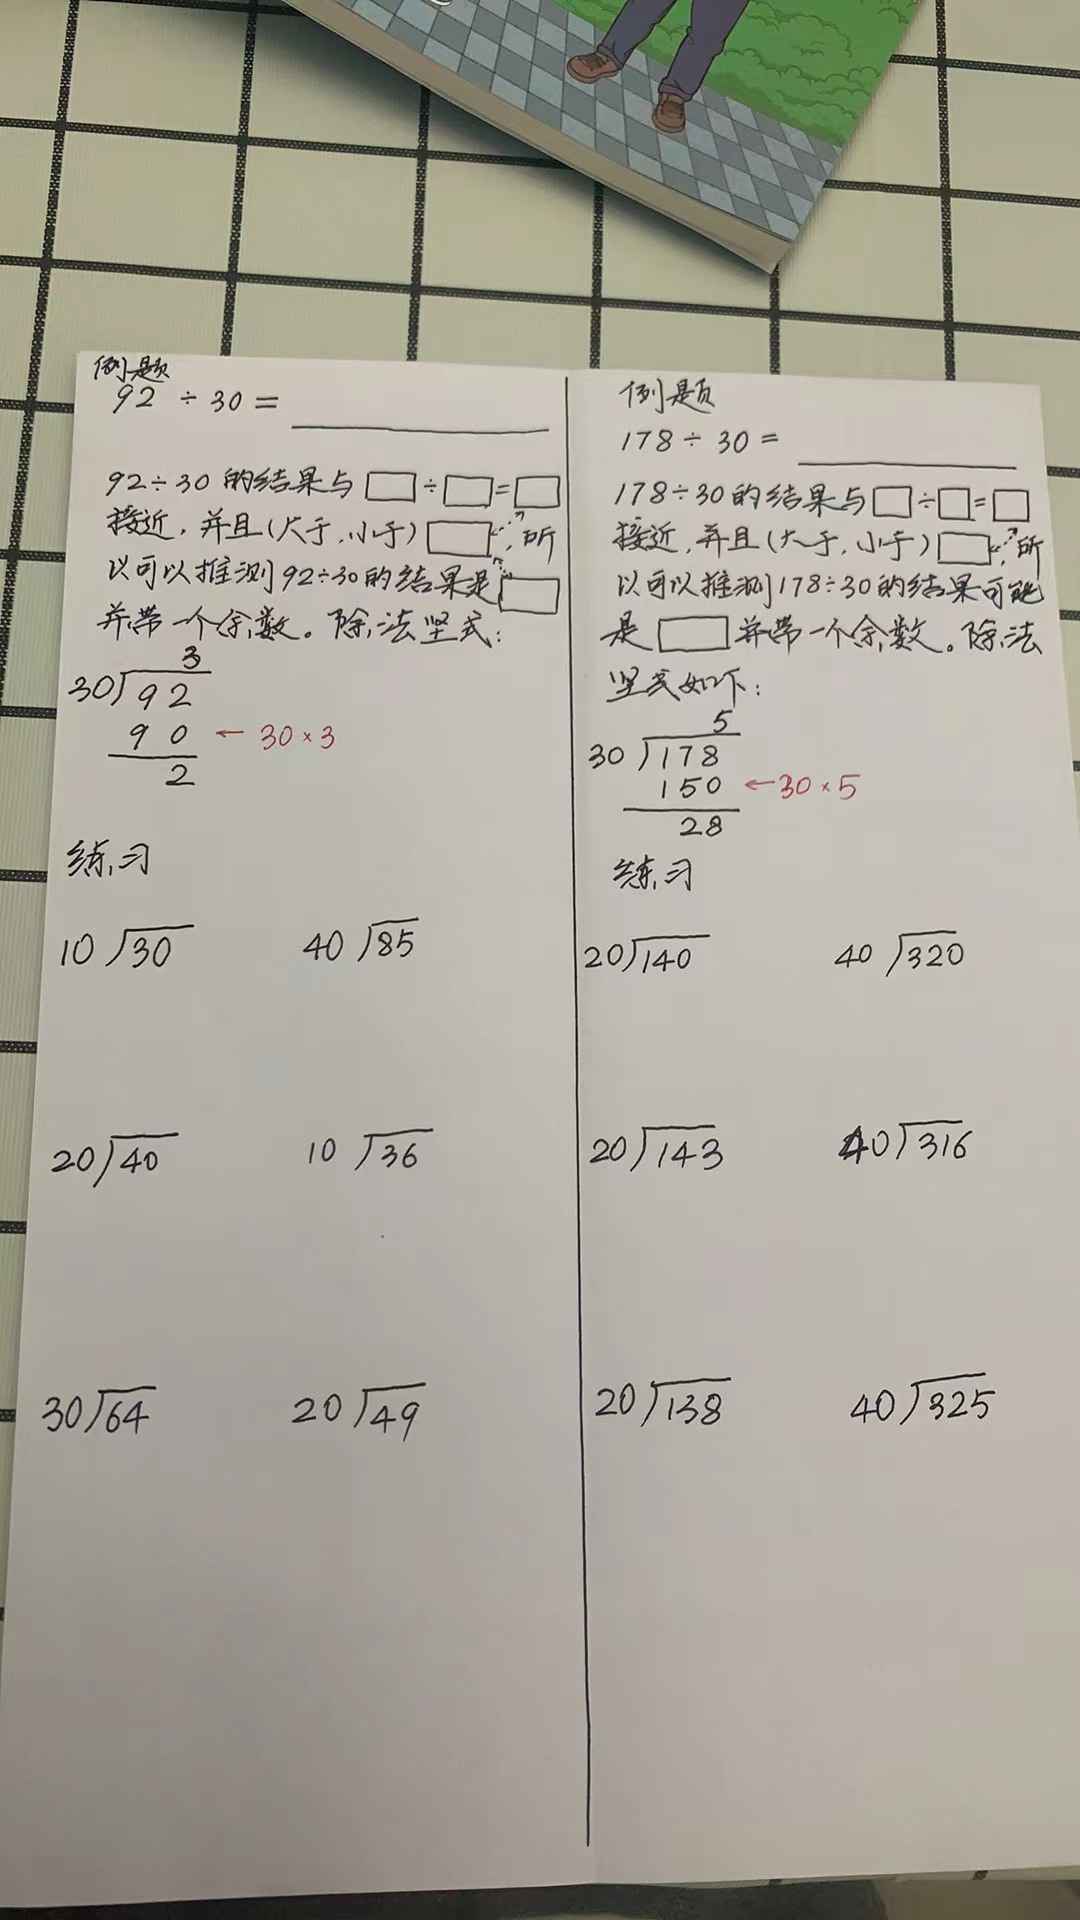 例题
92 ÷ 30 =
92÷30的结果与□÷□=□
接近，并且(大于、小于)□，所
以可以推测92÷30的结果是□
并带一个余数。除法坚式：
3
30 92
90 ← 30×3
2
练习
10 30
40 85
20 40
10 36
30 64
20 49
例题
178 ÷ 30 =
178÷30的结果与□÷□=□
接近，并且(大于、小于)□，所
以可以推测178÷30的结果可能
是□并带一个余数。除法
坚式如下：
5
30 178
150 ←30×5
28
练习
20 140
40 320
20 143
40 316
20 138
40 325